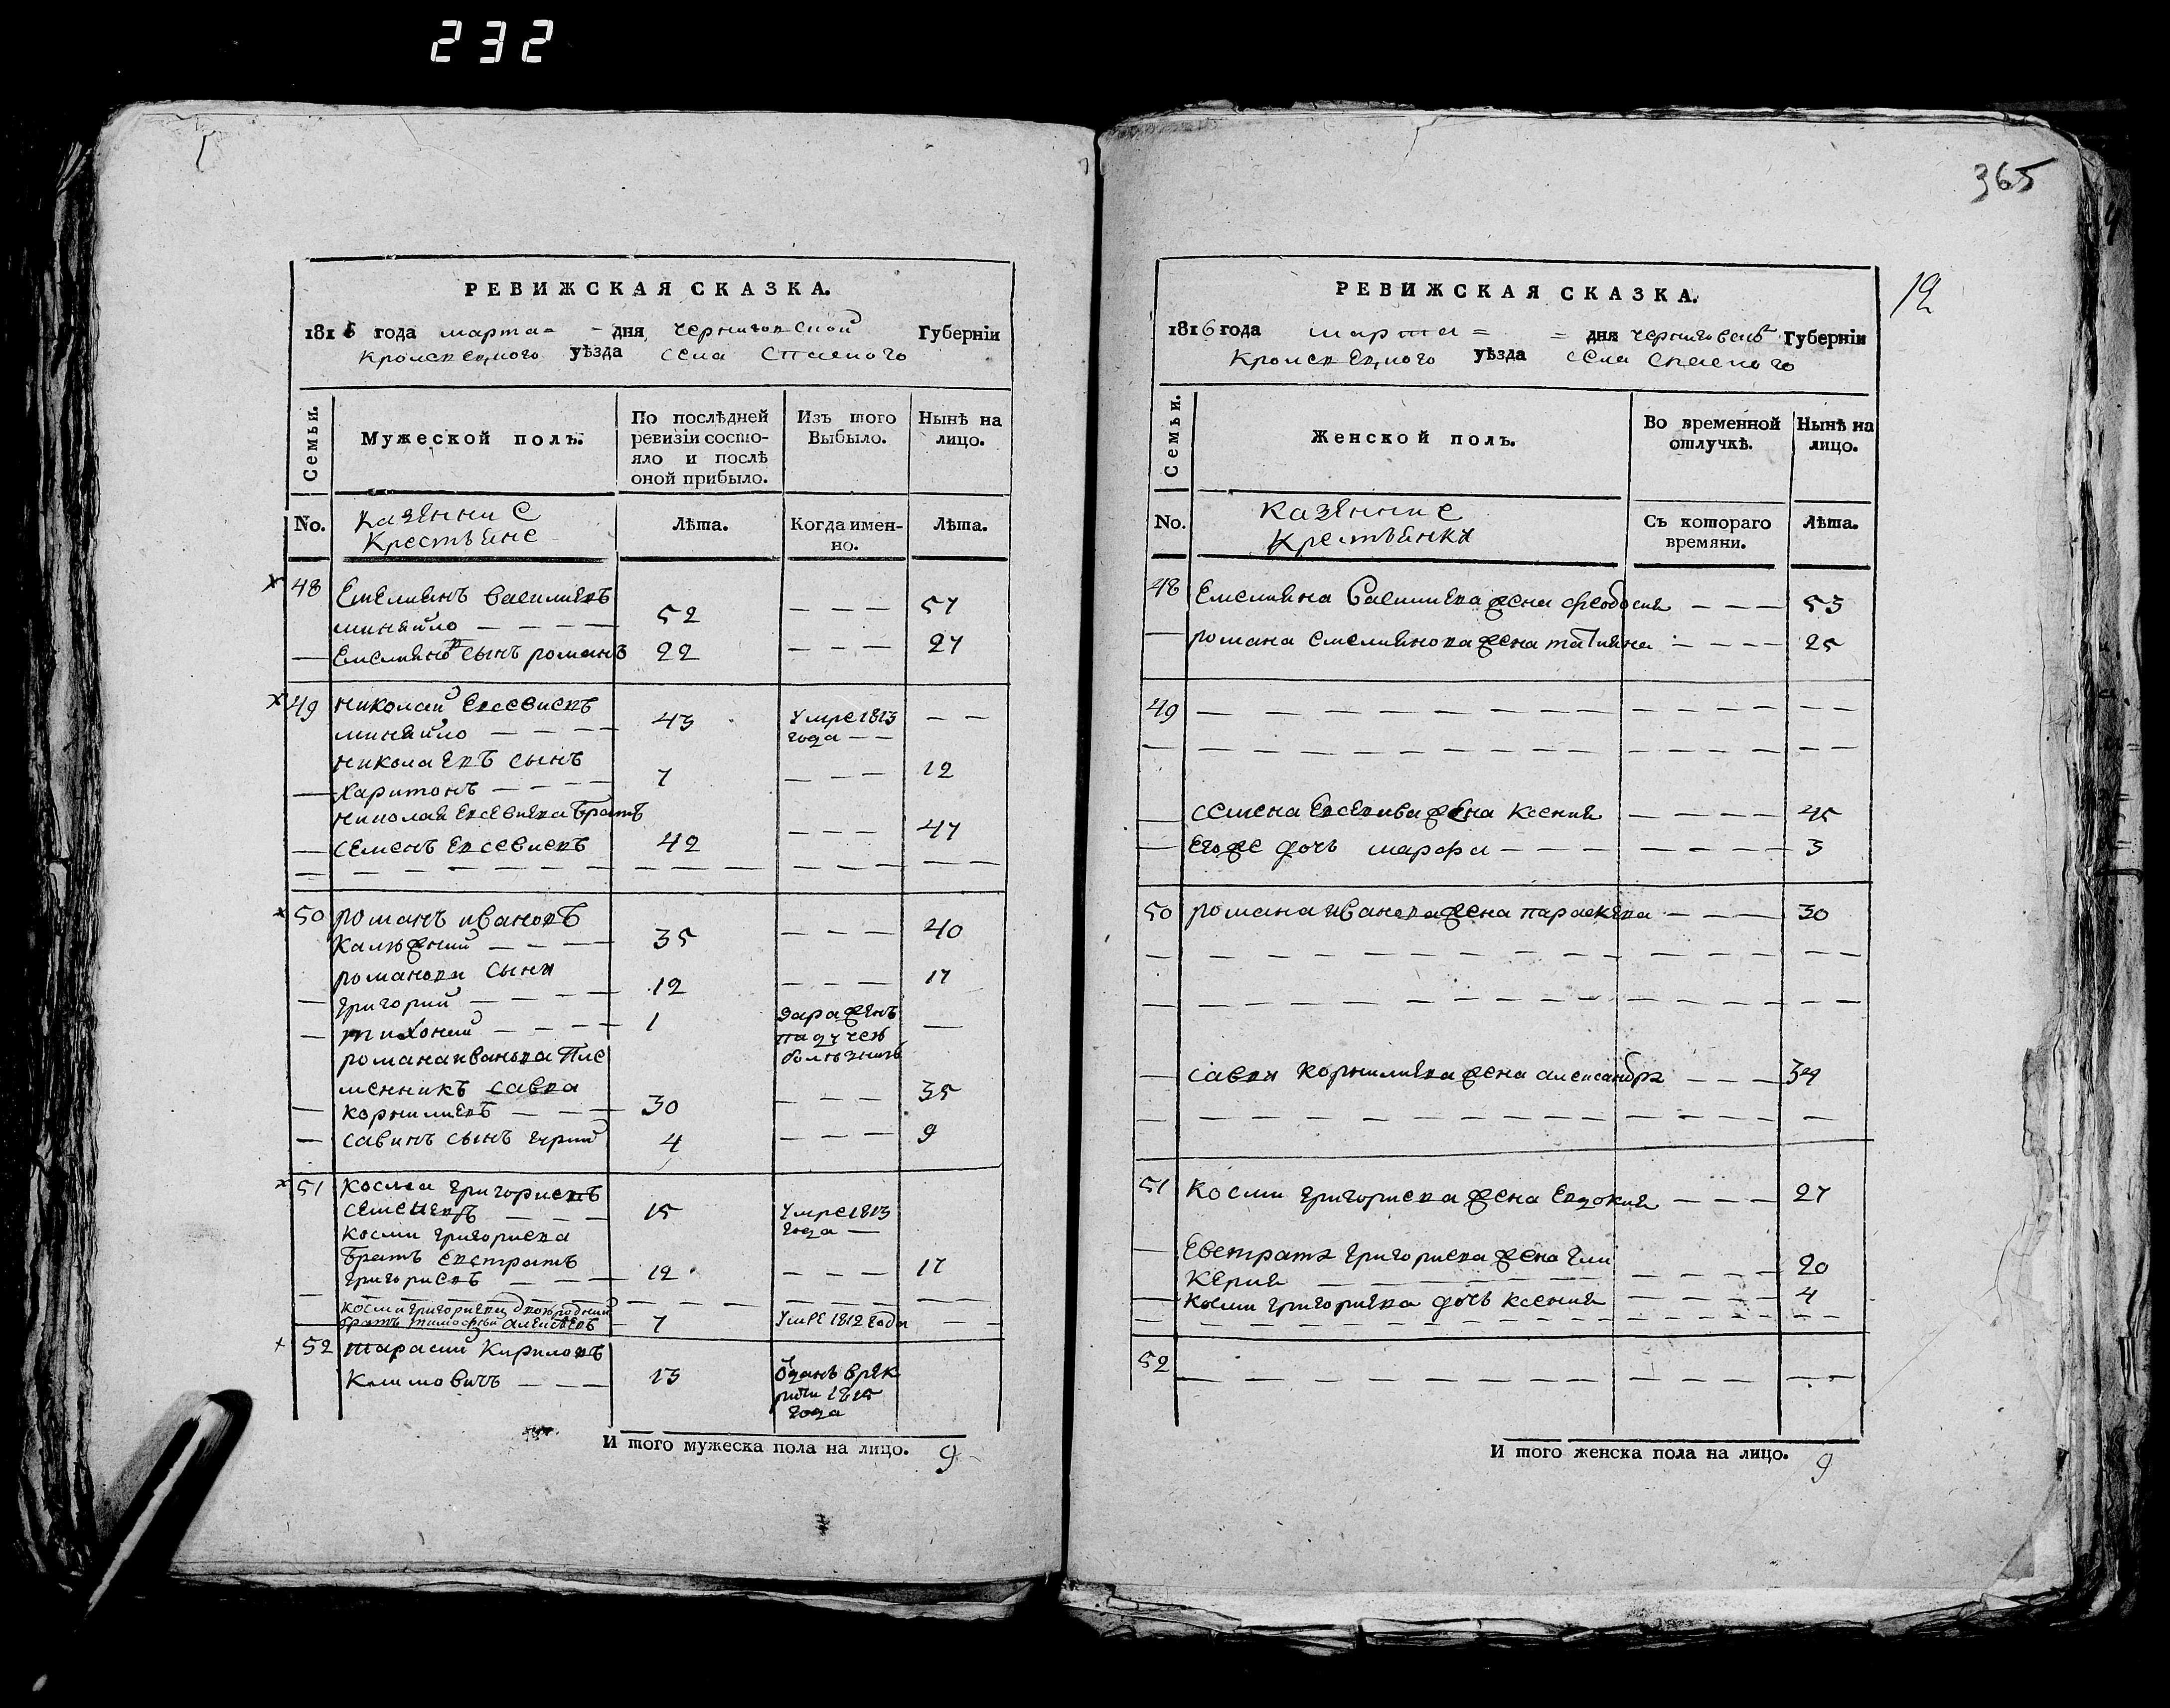 232
365
12
РЕВИЖСКАЯ СКАЗКА.
1816 года марта = - дня черниговской Губерніи
кролевецкого уѣзда села Спаского
Семьи.
Мужеской полъ.
По послѣдней ревизіи состо-
яло и послѣ
оной прибыло.
Изъ того
Выбыло.
Нынѣ на
лицо.
No.
Казенние
Крестьяне
Лѣта.
Когда имен-
но.
Лѣта.
48 Емелиянъ Василиевъ
миняйло — — — 52 — — — 57
— Емелиянов сынъ романъ 22 — — — 27
49 николай Евсевиевъ
миняйло — — — 43 Умре 1813 — —
года — —
николаевъ сынъ
— харитонъ — — — 7 — — — 12
николая Евсевиева братъ
— семенъ Евсевиевъ 42 — — — 47
50 романъ ивановъ
калюжний — — — 35 — — — 40
романови сини
— григорий — — — 12 — — — 17
— тихоний — — — 1 зараженъ —
падучей
болѣзнию
романа иванова пле
менникъ савва
— корнилиевъ — — — 30 — — — 35
— савинъ сынъ гурий 4 — — — 9
51 косма григориевъ
семенецъ — — — 15 Умре 1813
года —
косми григориева
братъ евстратъ
григориевъ — — — 12 — — — 17
косми григориева двоюродний
братъ тимофей алексѣевъ 7 Умре 1812 года — —
52 тарасий кириловъ
климовичъ — — — 13 отданъ в рек
рути 1815
года
И того мужеска пола на лицо. 9
РЕВИЖСКАЯ СКАЗКА.
1816 года марта = = дня черниговской Губерніи
кролевецкого уѣзда села Спаского
Семьи.
Женской полъ.
Во временной
отлучкѣ.
Нынѣ на
лицо.
No.
Казенние
Крестьянки
Съ котораго
времяни.
Лѣта.
48 Емелияна Василиева жена феодосия — — — 53
— романа емелиянова жена татияна — — — 25
49 — — — — — —
— — — — — — —
— семена Евсевиева жена ксения — — — — 45
— Егоже дочь марфа — — — — — — 3
50 романа иванова жена параскева — — — 30
— — — — — — —
— — — — — — —
— савви корнилиева жена александра — — — 34
— — — — — — —
51 Косми григориева жена Евдокия — — — 27
— Евстрата григориева жена гли
керия — — — — 20
— косми григориева дочь ксения — — — — 4
— — — — — — —
52
— — — — — — —
И того женска пола на лицо. 9